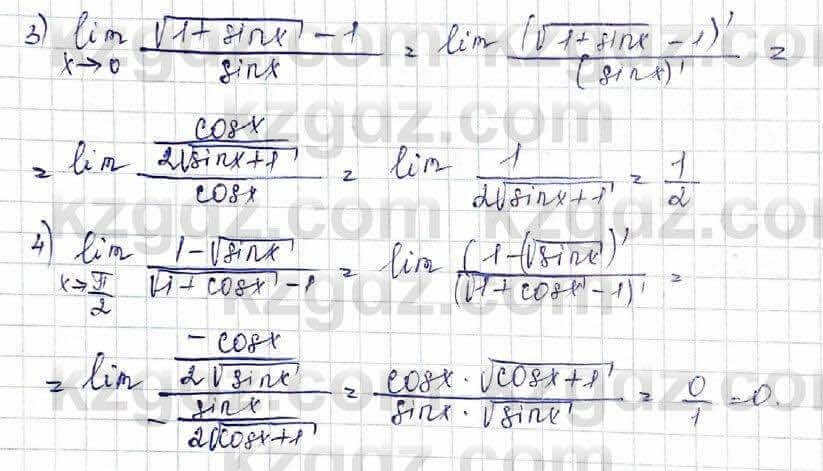 3) lim x→0 (√(1+sinx) - 1)/(sinx) = lim (√(1+sinx) - 1)'/(sinx)' =
= lim (cosx/(2√(sinx+1)))/(cosx) = lim 1/(2√(sinx+1)) = 1/2
4) lim x→π/2 (1-√sinx)/(√(1+cosx) - 1) = lim (1-(√sinx)'/(√(1+cosx) - 1)' =
= lim (-cosx/(2√sinx))/(-sinx/(2√(cosx+1))) = (cosx · √(cosx+1))/(sinx · √sinx) = 0/1 = 0.
kzgdz.com